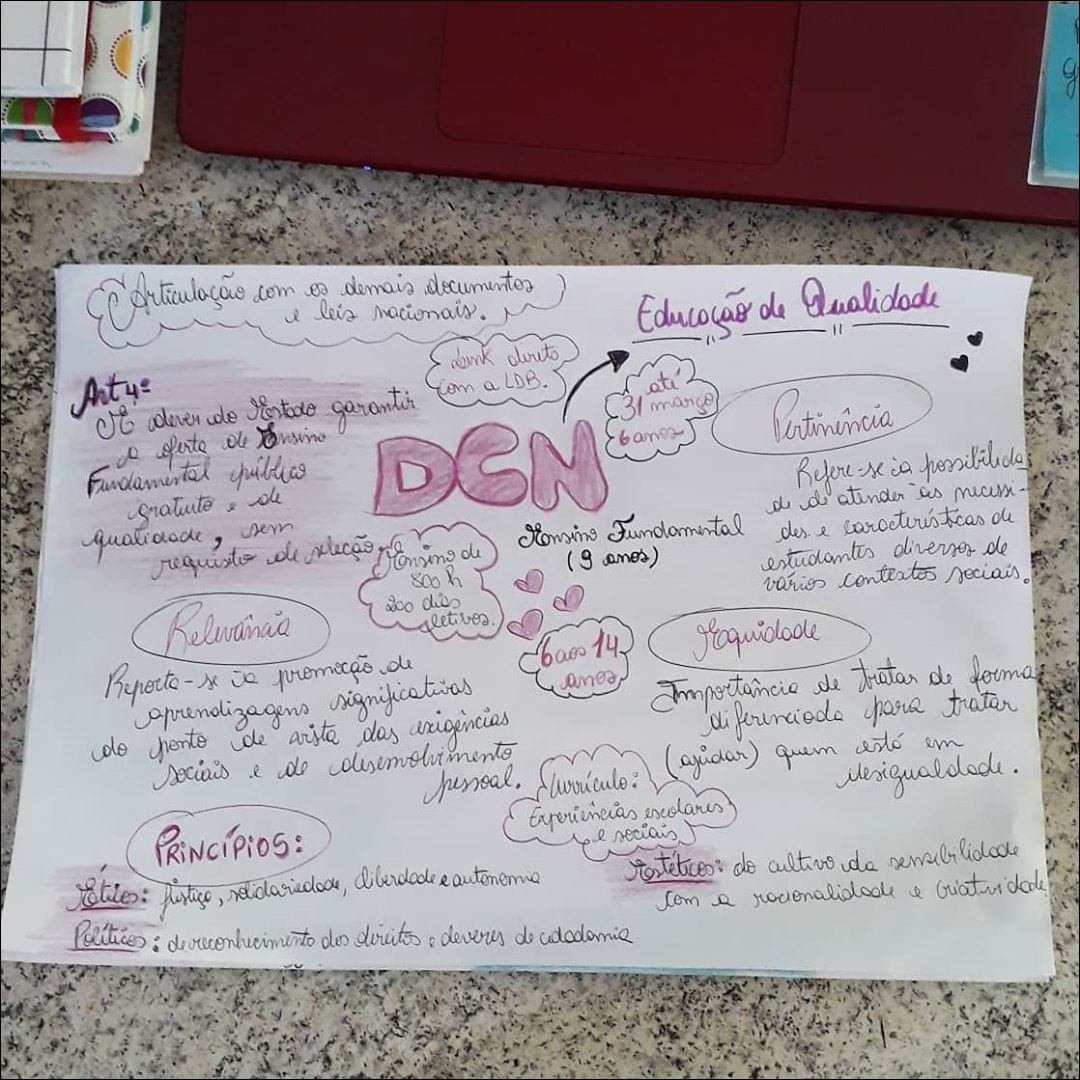 Articulação com os demais documentos
e leis nacionais.
Educação de Qualidade
Link direto
com a LDB.
até
31 março
6 anos
Art 4º
É dever do Estado garantir
a oferta de Ensino
Fundamental público
gratuito e de
qualidade, sem
requisito de seleção.
DCN
Ensino Fundamental
(9 anos)
Pertinência
Refere-se à possibilida
de de atender às necessi-
des e características de
estudantes diversos de
vários contextos sociais.
Ensino de
800 h
200 dias
letivos.
6 aos 14
anos
Relevância
Reporta-se à promoção de
aprendizagens significativas
do ponto de vista das exigências
sociais e de desenvolvimento
pessoal.
Equidade
Importância de tratar de forma
diferenciada para tratar
(ajudar) quem está em
desigualdade.
Currículo:
Experiências escolares
e sociais
PRINCÍPIOS:
Éticos: justiça, solidariedade, liberdade e autonomia
Políticos: de reconhecimento dos direitos e deveres de cidadania
Estéticos: do cultivo da sensibilidade
com a racionalidade e criatividade